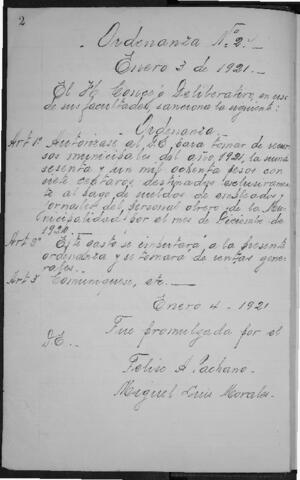 2
Ordenanza Nº 2.-
Enero 3 de 1921.-
El H. Concejo Deliberante, en uso
de sus facultades, sanciona la siguiente:
Ordenanza.-
Art 1º Autorízase al D.E. para tomar de recur
sos municipales del año 1921, la suma
sesenta y un mil ochenta pesos con
siete centavos destinados exclusivamen
te al pago de sueldos de empleados y
jornales del personal obrero de la Mu
nicipalidad por el mes de Diciembre de
1920.-
Art 2º Este gasto se imputará a la presente
ordenanza y se tomará de rentas gene
rales.-
Art 3º Comuníquese, etc.-
Enero 4 - 1921
Fue promulgada por el
D.E.-
Felipe A. Pachano.
Miguel Luis Morales.